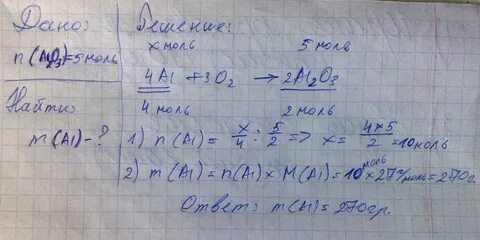 Дано:
n(Al₂O₃)=5моль
Найти:
m(Al)-?
Решение:
x моль 5 моль
4Al + 3O₂ → 2Al₂O₃
4 моль 2 моль
1) n(Al) = x/4 : 5/2 => x = 4*5/2 = 10моль
2) m(Al) = n(Al) × M(Al) = 10 моль × 27г/моль = 270г.
Ответ: m(Al) = 270гр.